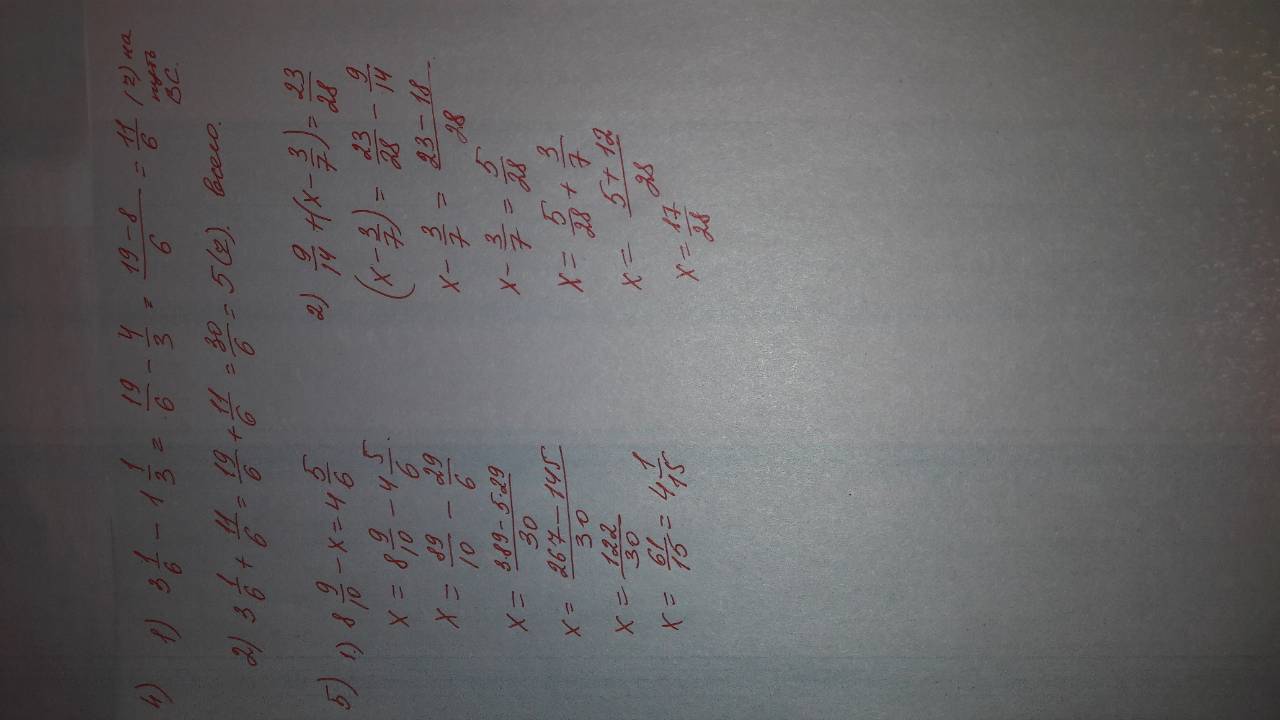 4) 1) 3 1/6 - 1 1/3 = 19/6 - 4/3 = (19-8)/6 = 11/6 (ч) на путь ВС.
2) 3 1/6 + 11/6 = 19/6 + 11/6 = 30/6 = 5 (ч). всего.
5) 1) 8 9/10 - x = 4 5/6
x = 8 9/10 - 4 5/6.
x = 89/10 - 29/6
x = (3·89-5·29)/30
x = (267-145)/30
x = 122/30
x = 61/15 = 4 1/15
2) 9/14 + (x - 3/7) = 23/28
(x - 3/7) = 23/28 - 9/14
x - 3/7 = (23-18)/28
x - 3/7 = 5/28
x = 5/28 + 3/7
x = (5+12)/28
x = 17/28